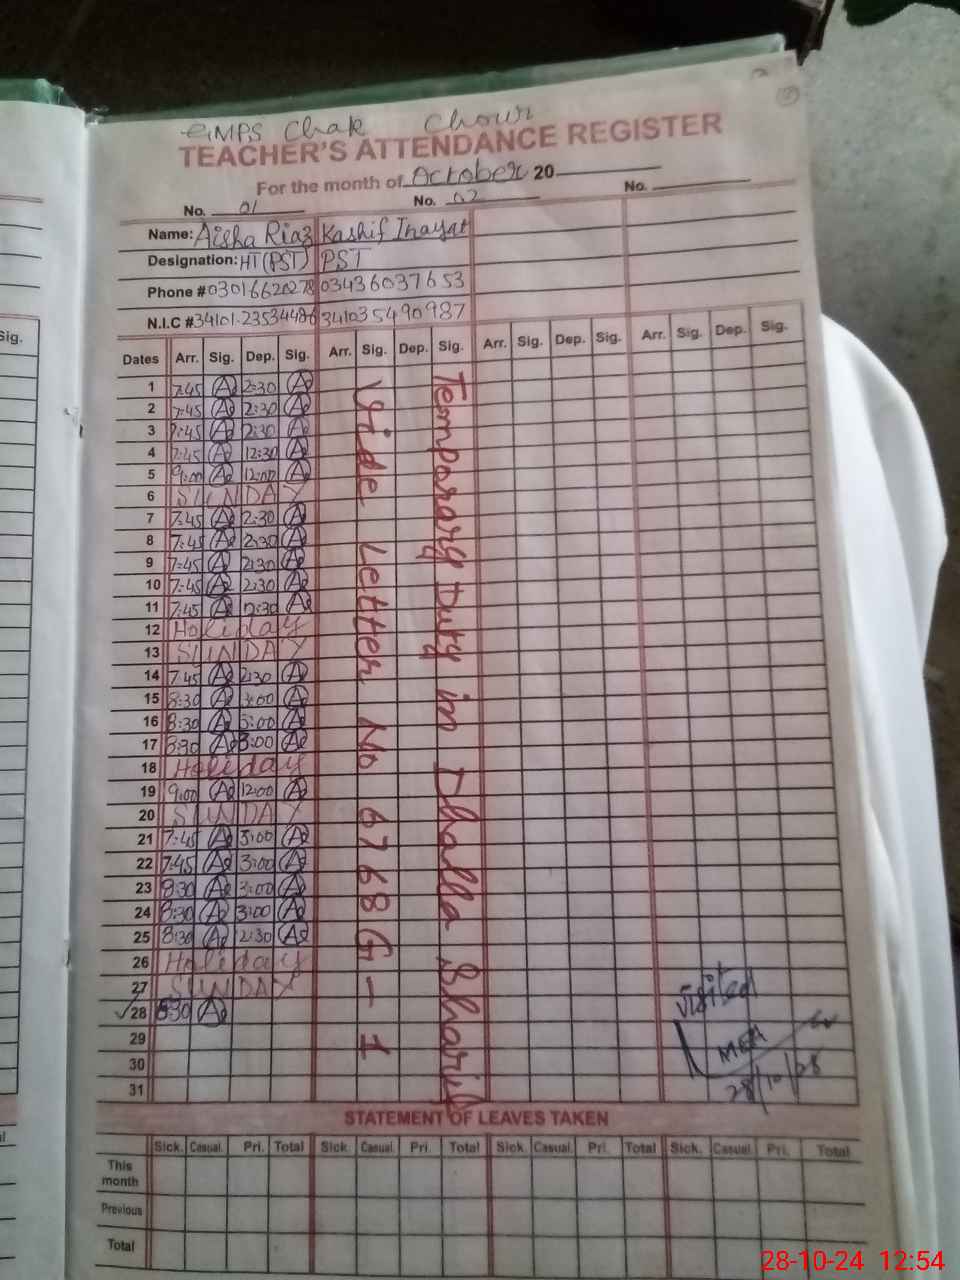 GMPS Chak Chour
TEACHER'S ATTENDANCE REGISTER
For the month of October 20
No. 01 No. 02 No.
Name: Aisha Riaz Kashif Inayat
Designation: HT (PST) PST
Phone # 03016620278 03436037653
N.I.C # 34101-23534486 341035490987
Dates Arr. Sig. Dep. Sig. Arr. Sig. Dep. Sig. Arr. Sig. Dep. Sig. Arr. Sig. Dep. Sig.
1 7:45 2:30
2 7:45 2:30
3 7:45 2:30
4 7:45 12:30
5 9:00 12:00
6 SUNDAY
7 7:45 2:30
8 7:45 2:30
9 7:45 2:30
10 7:45 2:30
11 7:45 12:30
12 Holiday
13 SUNDAY
14 7:45 2:30
15 8:30 3:00
16 8:30 3:00
17 8:30 3:00
18 Holiday
19 9:00 12:00
20 SUNDAY
21 7:45 3:00
22 7:45 3:00
23 8:30 3:00
24 8:30 3:00
25 8:30 2:30
26 Holiday
27 SUNDAY
28 8:30
29
30
31
Temporary Duty in Dhalla Sharif
Vide Letter No 6768 G-1
visited
MEA
28/10/28
STATEMENT OF LEAVES TAKEN
Sick. Casual. Pri. Total Sick. Casual. Pri. Total Sick. Casual. Pri. Total Sick. Casual. Pri. Total
This month
Previous
Total
Sig.
28-10-24 12:54